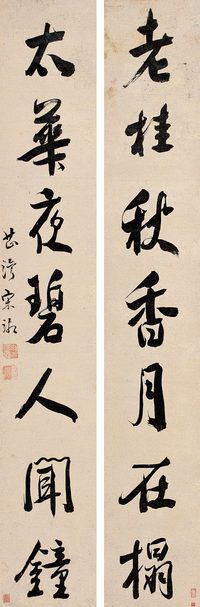 老桂秋香月在榻
太華夜碧人聞鐘
芷灣宋湘